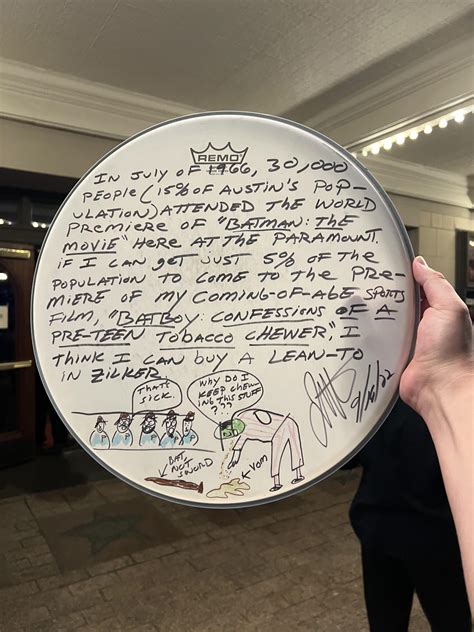 REMO
IN JULY OF 1966, 30,000
PEOPLE (15% OF AUSTIN'S POP-
ULATION) ATTENDED THE WORLD
PREMIERE OF "BATMAN: THE
MOVIE" HERE AT THE PARAMOUNT.
IF I CAN GET JUST 5% OF THE
POPULATION TO COME TO THE PRE-
MIERE OF MY COMING-OF-AGE SPORTS
FILM, "BATBOY: CONFESSIONS OF A
PRE-TEEN TOBACCO CHEWER", I
THINK I CAN BUY A LEAN-TO
IN ZILKER.
THAT'S
SICK.
WHY DO I
KEEP CHEW-
ING THIS STUFF
???
9/10/22
BAT,
NOT
SWORD
VOM